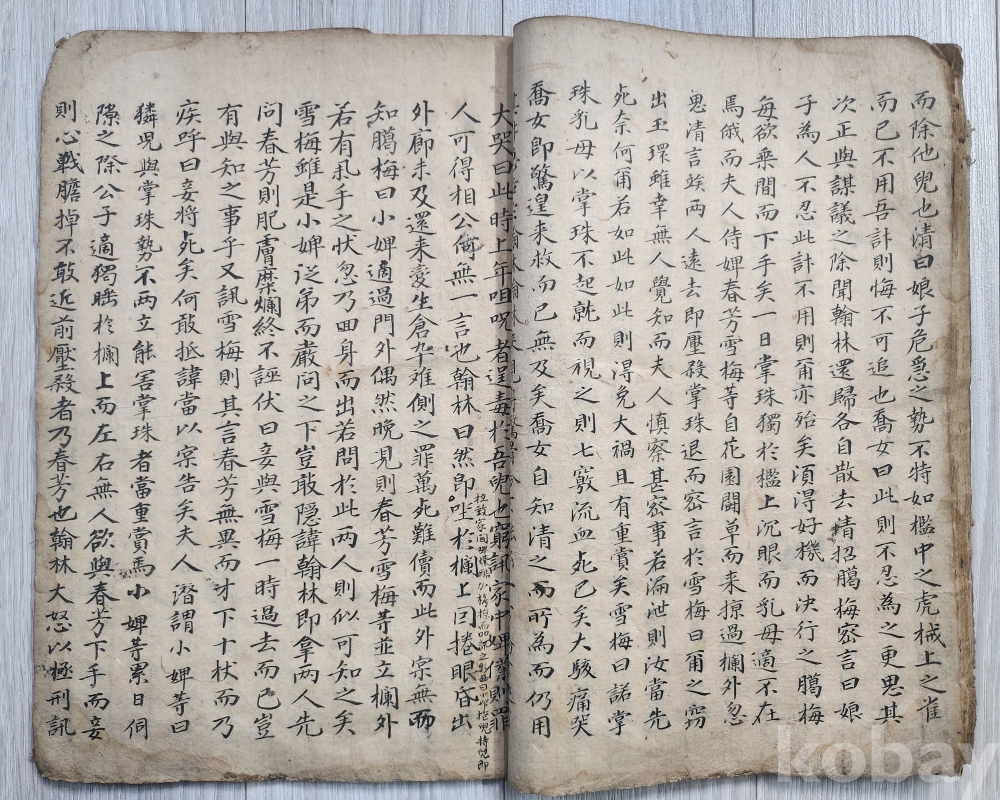 而除他兒也淸曰娘子危急之勢不特如檻中之虎械上之雀
而已不用吾計則悔不可追也喬女曰此則不忍為之更思其
次正與謀議之除聞翰林還歸各自散去淸招臈梅密言曰娘
子為人不忍此計不用則甭亦殆矣湏得好機而決行之臈梅
每欲乗間而下手矣一日掌珠獨於檻上沉眠而乳母適不在
焉俄而夫人侍婢春芳雪梅等自花園鬪草而來掠過欄外忽
思淸言竢兩人遠去即壓殺掌珠退而密言於雪梅曰甭之窃
出玉環雖幸無人覺知而夫人愼察甚密事若漏泄則汝當先
死奈何甭若如此如此則得免大禍且有重賞矣雪梅曰諾掌
珠乳母以掌珠不起就而視之則七竅流血死已矣大駭痛哭
喬女即驚遑来救而已無及矣喬女自知淸之而所為而仍用
大哭曰此時上年咀呪者逞毒於吾兒也窮訊家中婢僕則罪
人可得相公何無一言也翰林曰然即坐於欄上因捲眼昏出
外廊未及還来変生倉卒难側之罪萬死難償而此外宲無而
知臈梅曰小婢適過門外偶然晩見則春芳雪梅等並立欄外
若有乑手之状忽乃回身而出若問於此两人則似可知之矣
雪梅雖是小婢之弟而嚴问之下豈敢隠諱翰林即拿两人先
问春芳則肥膚糜爛終不誣伏曰妾與雪梅一時過去而已豈
有與知之事乎又訊雪梅則其言春芳無異而才下十杖而乃
疾呼曰妾将死矣何敢抵諱當以宲告矣夫人潛謂小婢等曰
獜児與掌珠勢不两立能害掌珠者當重賞焉小婢等累日伺
隙之際公子適獨睡於欄上而左右無人欲與春芳下手而妾
則心戰膽掉不敢近前壓殺者乃春芳也翰林大怒以極刑訊